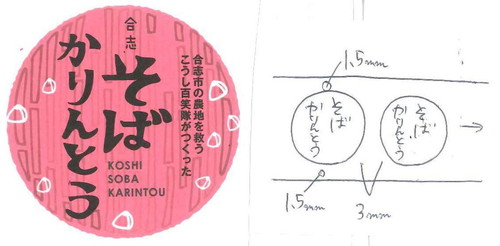 合志
そば
かりんとう
合志市の農地を救う
こうし百笑隊がつくった
KOSHI
SOBA
KARINTOU
1.5mm
そば
かりんとう
そば
かりんとう
1.5mm
3mm